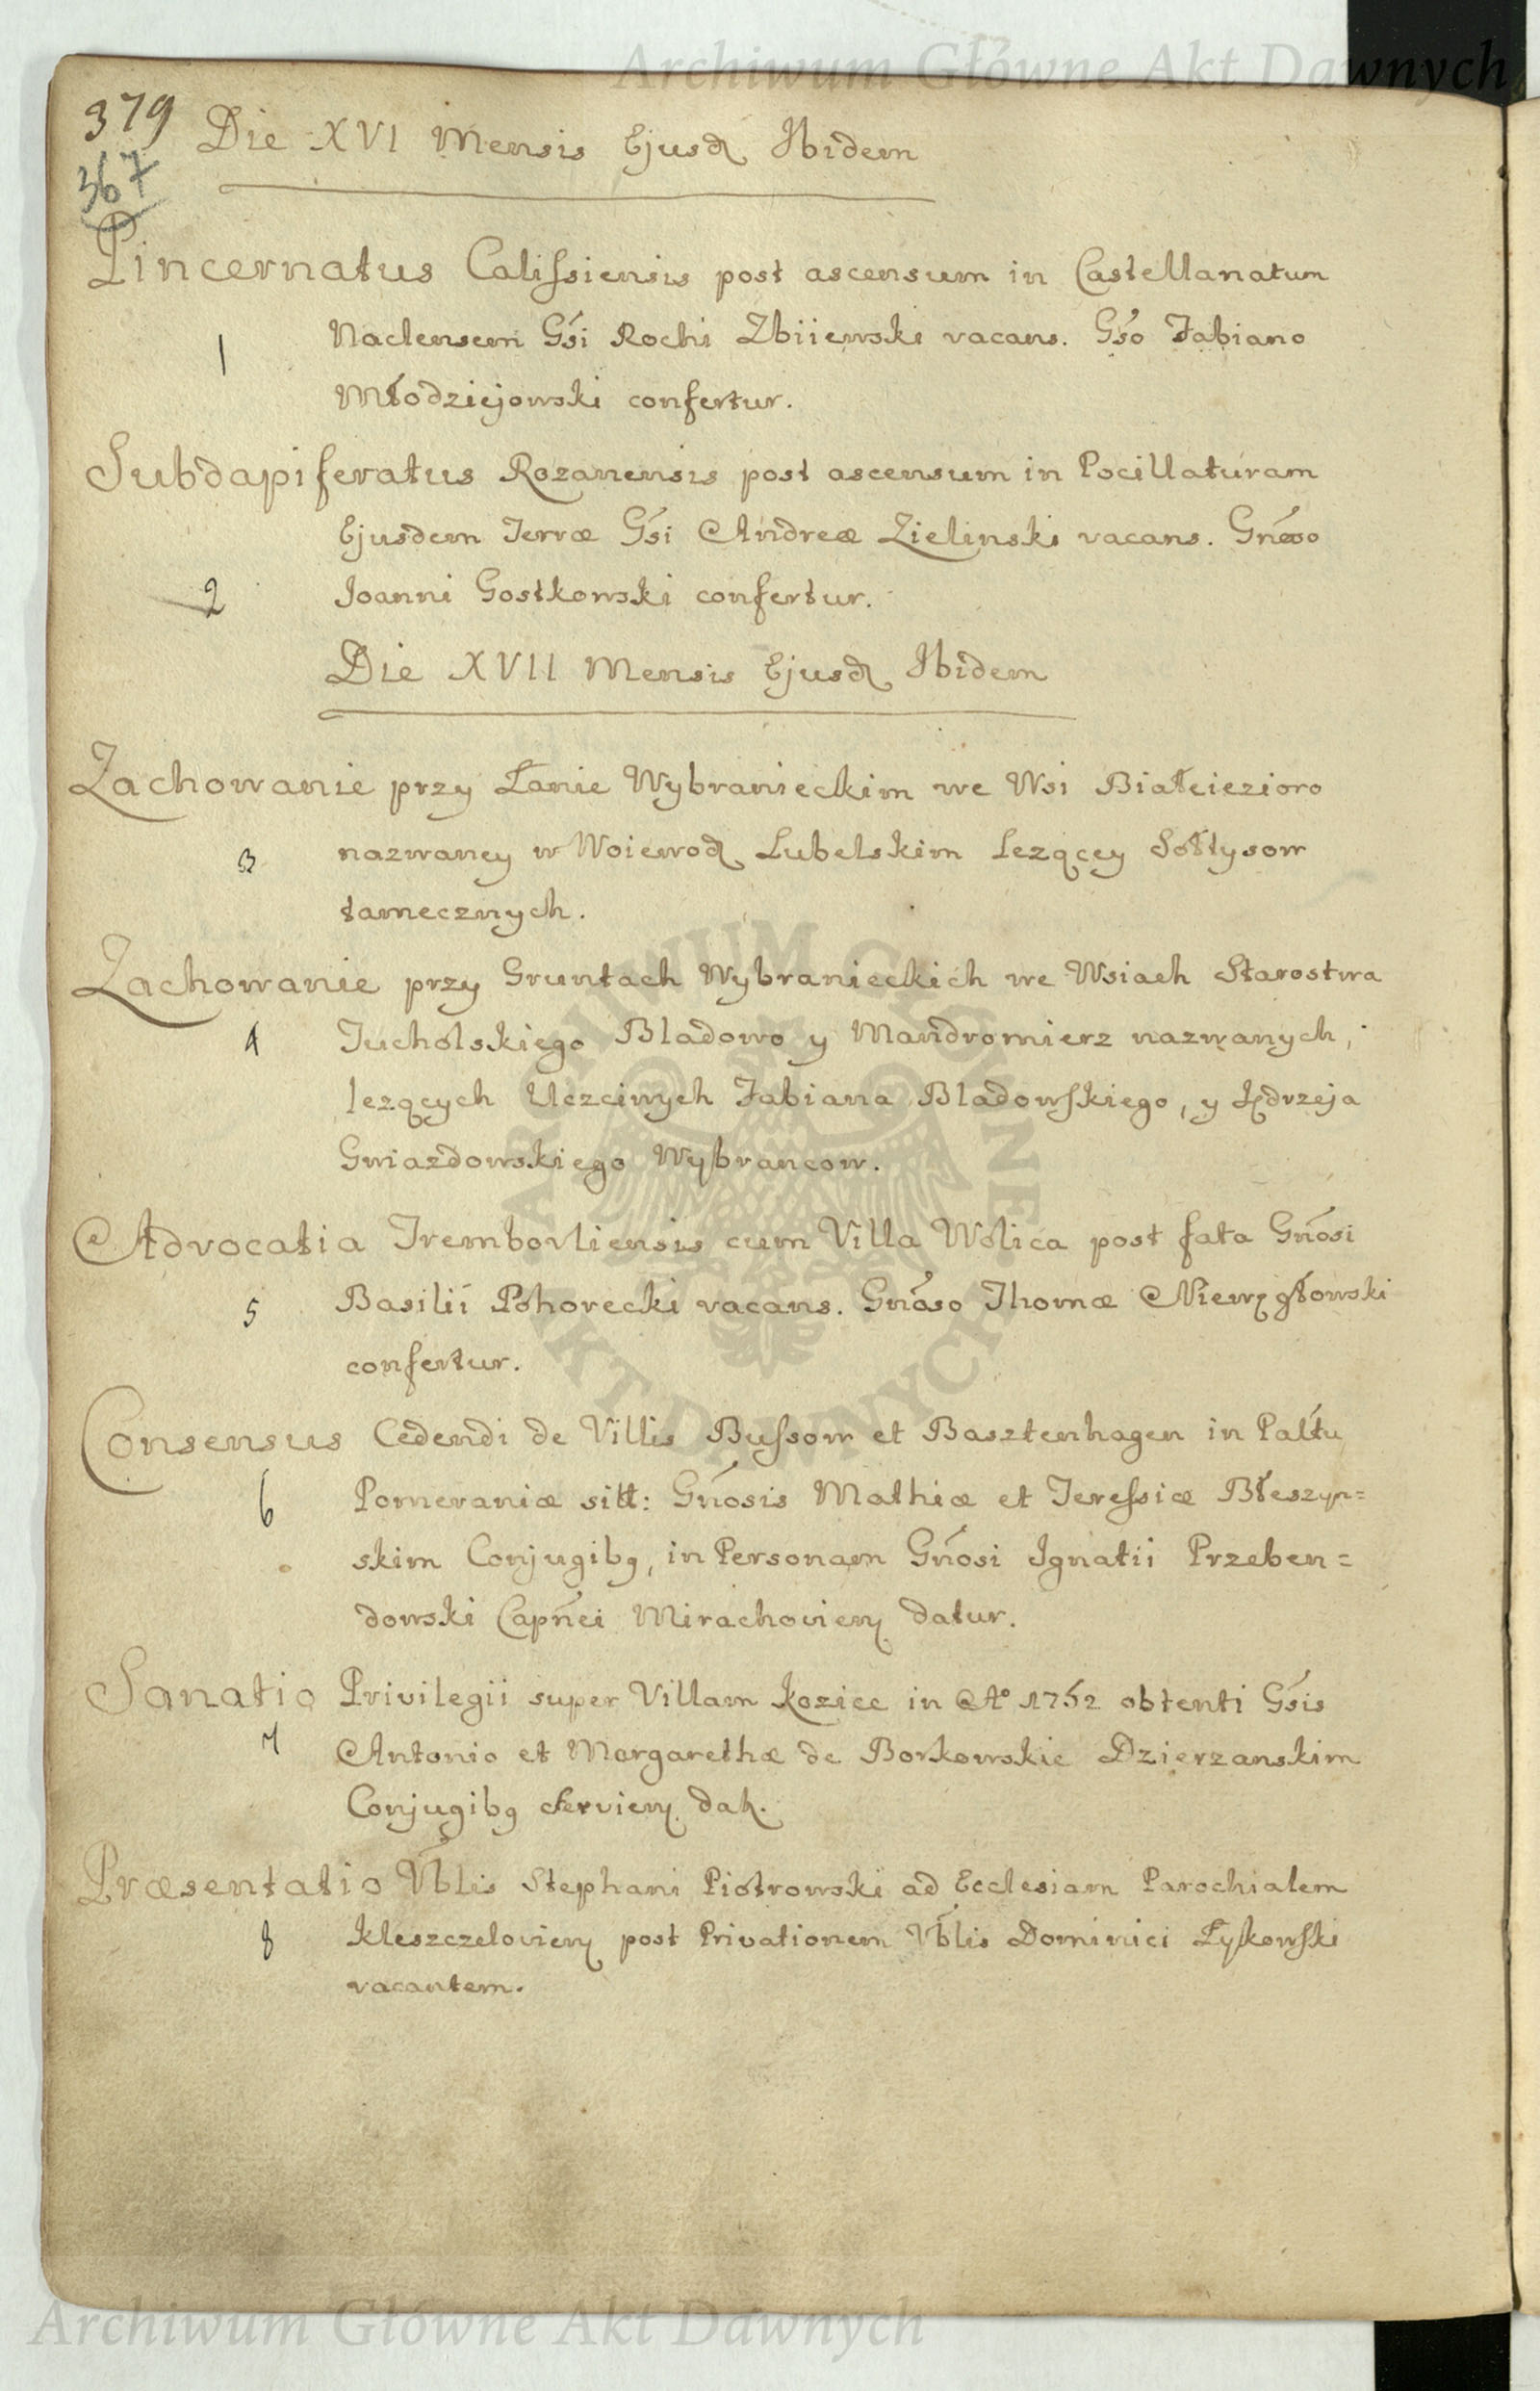 Archiwum Główne Akt Dawnych
379
367
Die XVI Mensis Ejusd Ibidem
Pincernatus Calissiensis post ascensum in Castellanatum
1 Naclensem Gsi Rochi Zbiiewski vacans. Gso Fabiano
Młodziejowski confertur.
Subdapiferatus Rozanensis post ascensum in Pocillaturam
Ejusdem Terræ Gsi Andreæ Zielinski vacans. Gnoso
2 Joanni Gostkowski confertur.
Die XVII Mensis Ejusd Ibidem
Zachowanie przy Łanie Wybranieckim we Wsi Białeiezioro
3 nazwaney w Woiewod Lubelskim Lezącey Sołtysow
tamecznych.
Zachowanie przy Gruntach Wybranieckich we Wsiach Starostwa
4 Tucholskiego Bladowo y Mandromierz nazwanych,
lezących Uczciwych Fabiana Bladowskiego, y Jędrzeja
Gwiazdowskiego Wybrancow.
Advocatia Trembovliensis cum Villa Wolica post fata Gnosi
5 Basilii Pohorecki vacans. Gnoso Thomæ Niewęgłowski
confertur.
Consensus Cedendi de Villis Bussow et Basztenhagen in Paltu
6 Pomeraniæ sitt: Gnosis Mathiæ et Teressiæ Błeszyn=
skim Conjugibq, in Personam Gnosi Ignatii Przeben=
dowski Capnei Mirachovien datur.
Sanatio Privilegii super Villam Kozice in Ao 1752 obtenti Gsis
7 Antonio et Margarethæ de Borkowskie Dzierzanskim
Conjugibq servien dat.
Præsentatio Vblis Stephani Piotrowski ad Ecclesiam Parochialem
8 Kleszczelovien post Privationem Vblis Dominici Łyskowski
vacantem.
ARCHIWUM GŁÓWNE AKT DAWNYCH
Archiwum Główne Akt Dawnych